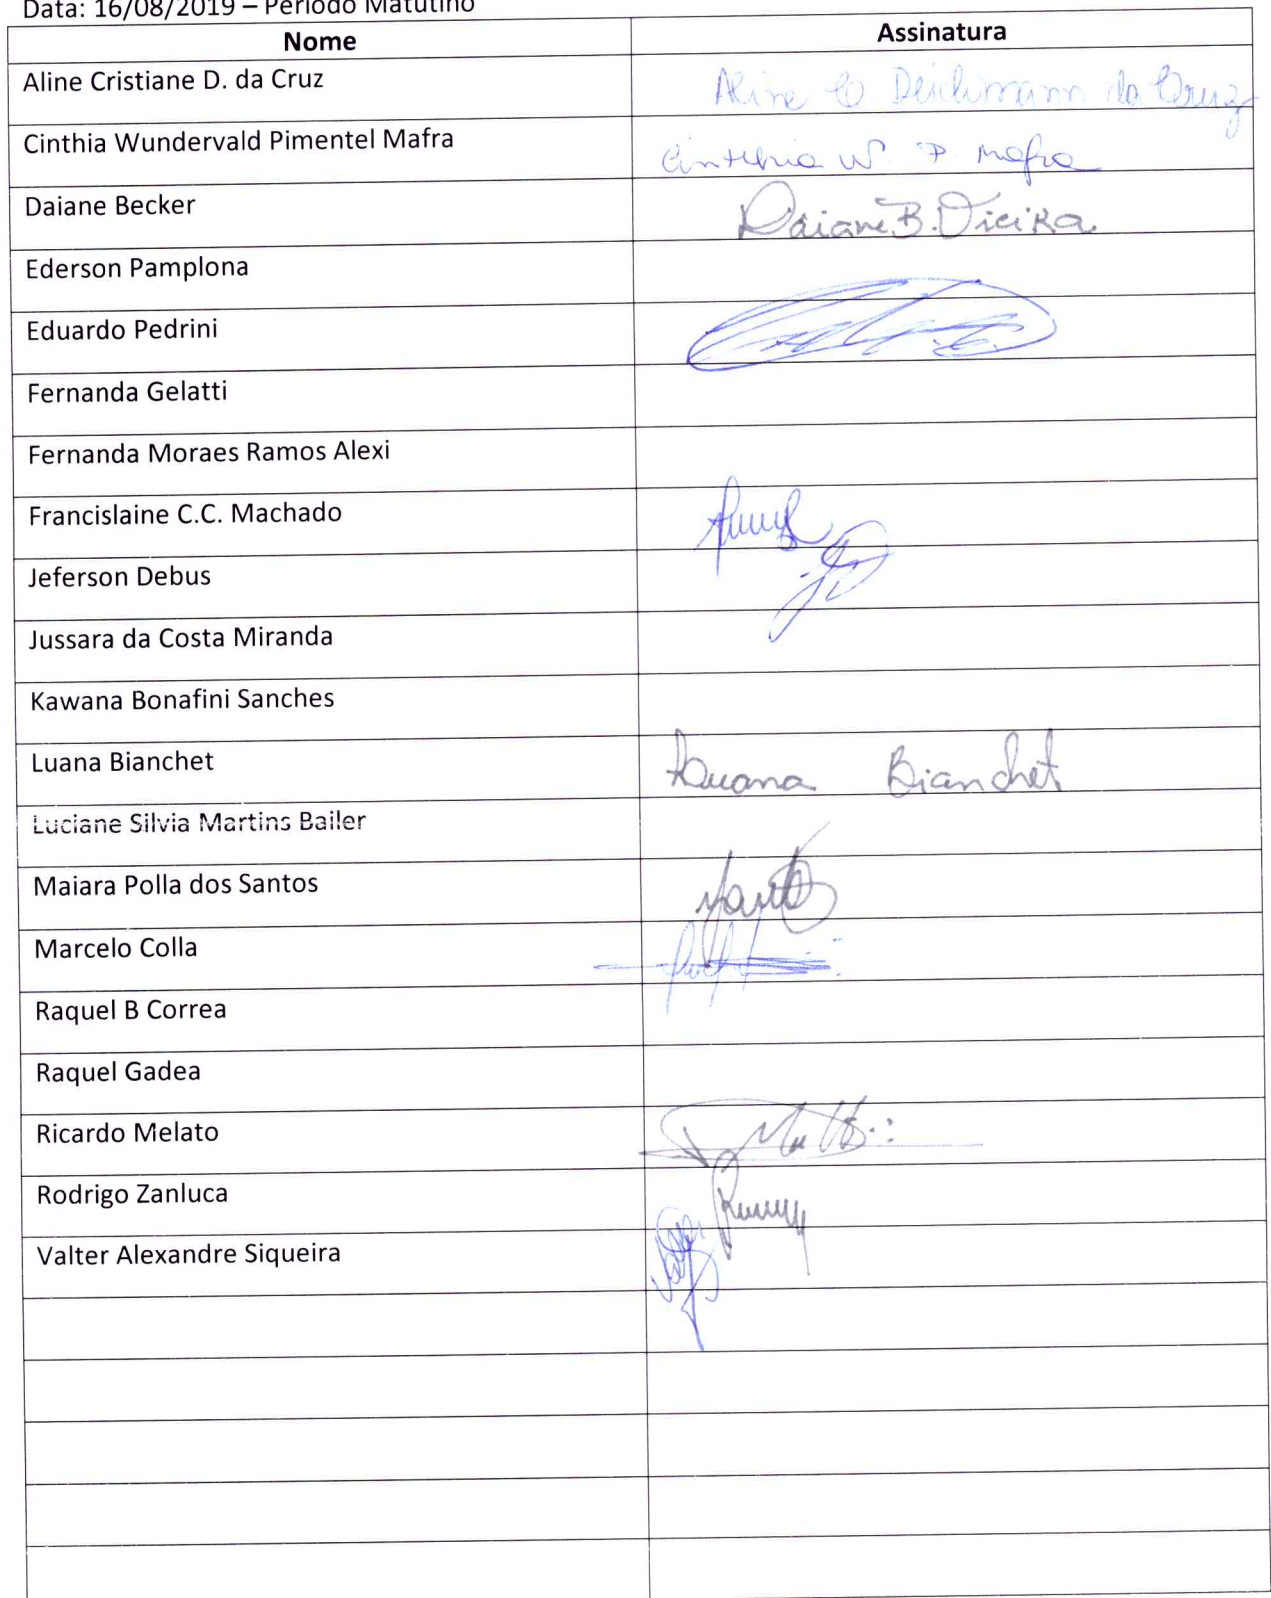 Data: 16/08/2019 – Período Matutino
Nome Assinatura
Aline Cristiane D. da Cruz Aline C Deichmann da Cruz
Cinthia Wundervald Pimentel Mafra Cinthia W. P. Mafra
Daiane Becker Daiane B. Vieira
Ederson Pamplona
Eduardo Pedrini
Fernanda Gelatti
Fernanda Moraes Ramos Alexi
Francislaine C.C. Machado
Jeferson Debus
Jussara da Costa Miranda
Kawana Bonafini Sanches
Luana Bianchet Luana Bianchet
Luciane Silvia Martins Bailer
Maiara Polla dos Santos
Marcelo Colla
Raquel B Correa
Raquel Gadea
Ricardo Melato
Rodrigo Zanluca
Valter Alexandre Siqueira